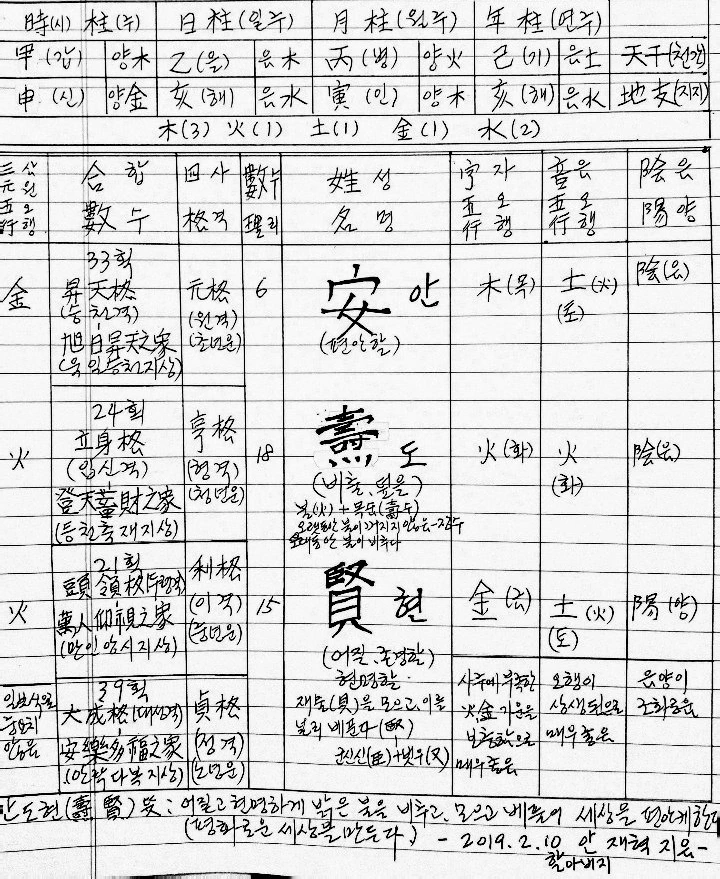 時(시) 柱(주) 日柱(일주) 月柱(월주) 年柱(연주)
甲(갑) 양木 乙(을) 은木 丙(병) 양火 己(기) 은土 天干(천간)
申(신) 양金 亥(해) 은水 寅(인) 양木 亥(해) 은水 地支(지지)
木(3) 火(1) 土(1) 金(1) 水(2)
三삼 合합 四사 數수 姓성 字자 音은 陰은
元원 數수 格격 理리 名명 五오 五오 陽양
五오 行행 行행
行행
33획
金 昇天格 元格 6 安 안 木(목) 土(火) 陰(은)
(승천격) (원격) (토)
旭日昇天之象 (초년운) (편안할)
(욱일승천지상)
24획
火 立身格 亨格 18 燾 도 火(화) 火 陰(은)
(입신격) (형격) (화)
登天蓄財之象 (청년운) (비출, 덮을)
(등천축재지상) 불(火)+목도(壽수)
오랫동안 불이 꺼지지 않음은-장수
오래동안 불이 비추다
21획
火 頭領格(두령격) 利格 15 賢 현 金(금) 土(火) 陽(양)
萬人仰視之象 (이격) (토)
(만인앙시지상) (중년운) (어질, 존경할)
현명할
39획
大成格(대성격) 貞格 재물(貝)을 모으고, 이를
安樂多福之象 (정격) 널리 베푼다(臤)
(안락다복지상) (노년운) 군신신(臣)+벗우(又)
사주에 부족한 오행이 음양이
火金 기운을 상생됨으로 조화로운
보충함으로 매우 좋음
매우 좋음
안도현(燾賢)은: 어질고 현명하게 밝은 불을 비추고, 모으고 베풀어 세상을 편안케한다
(평화로운 세상을 만든다.) - 2019.2.10 안재혁 지음-
할아버지